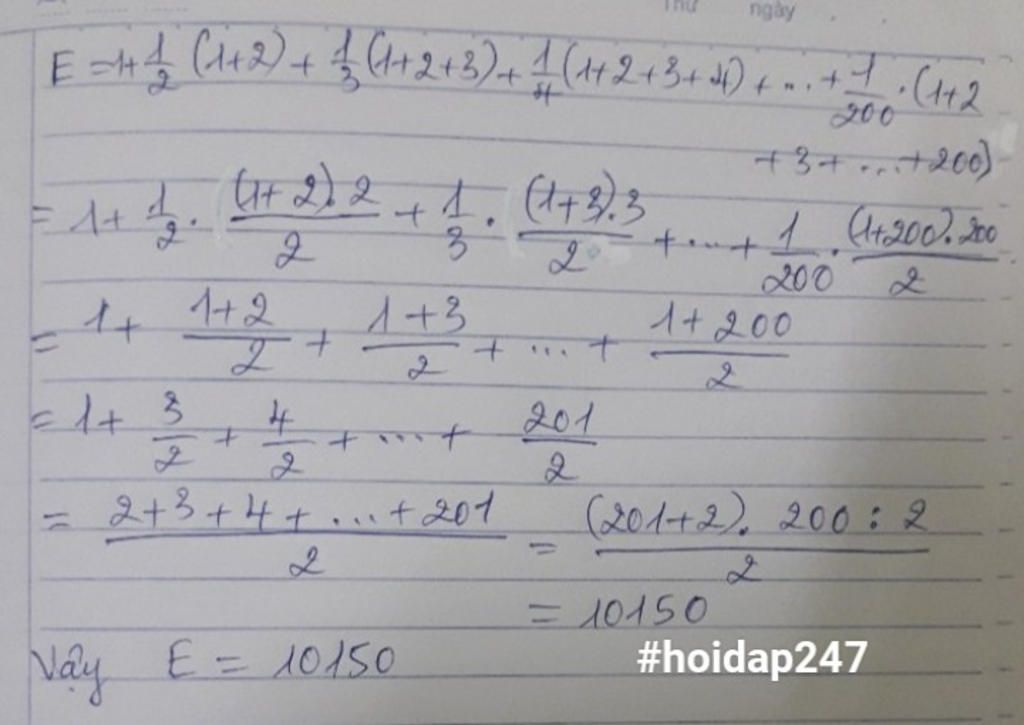 Thứ ngày
E = 1 + 1/2 (1+2) + 1/3 (1+2+3) + 1/4 (1+2+3+4) + ... + 1/200 . (1+2
+ 3 + ... + 200)
= 1 + 1/2 . (1+2).2/2 + 1/3 . (1+3).3/2 + ... + 1/200 . (1+200).200/2
= 1 + 1+2/2 + 1+3/2 + ... + 1+200/2
= 1 + 3/2 + 4/2 + ... + 201/2
= 2+3+4+...+201/2 = (201+2). 200 : 2/2
= 10150
Vậy E = 10150
#hoidap247